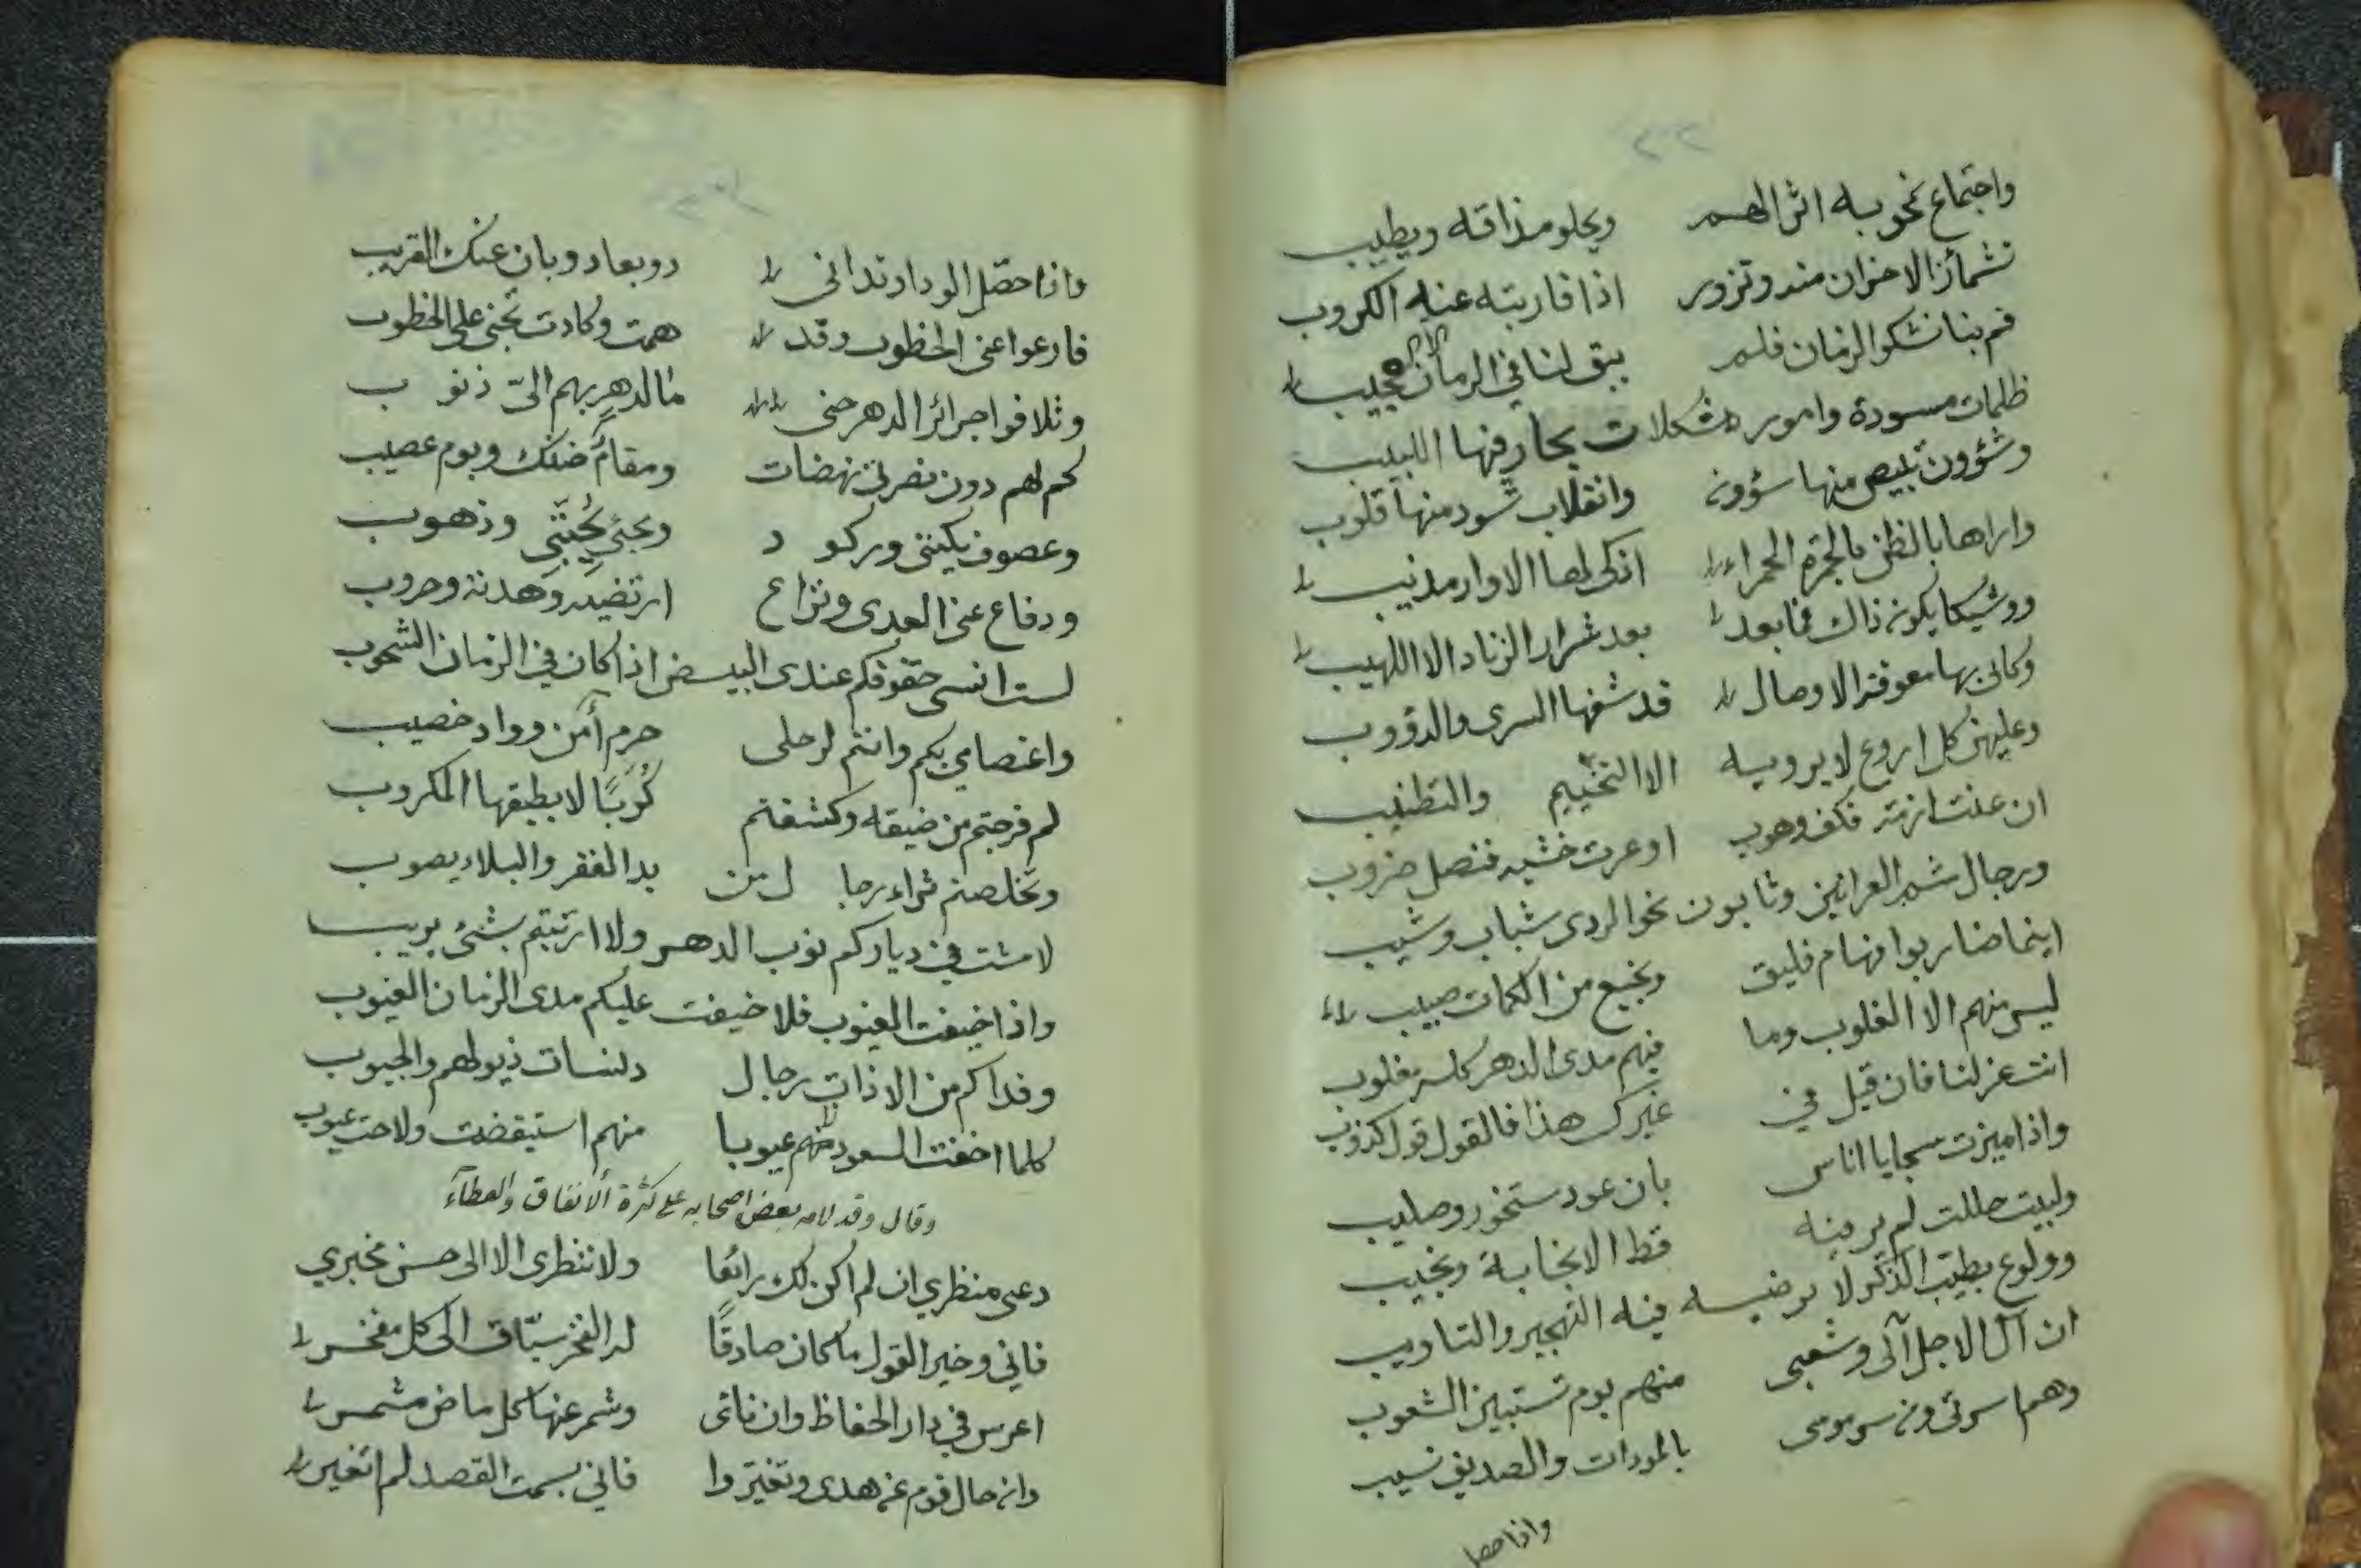 واجتماع نخو به اثر الهم ويحلو مذاقه ويطيب
تشمأز الاحزان منه وتزور اذا قاربته عنه الكروب
قم بنا نشكو الزمان فلم يبق لنا في الزمان مجيب
ظلمات مسودة وامور مشكلات يحار فيها اللبيب
وشؤون تبيض منها شؤون وانقلاب تسود منها قلوب
واراها بالظن كالجمرة الحمراء اذكى لها الاوار مذيب
ووشيكا يكون ذاك فما بعد بعد شرار الزناد الا اللهيب
وكاني بها معوقة الاوصال قد شفها السرى والدؤوب
وعليهن كل اروع لا يرويه الا التخييم والتطنيب
ان عنت ازمة فكف وهوب او عرت خشية فنصل ضروب
ورجال شم العرانين وثابون نحو الردى شباب وشيب
اينما ضاربوا فهام فليق ونجيع من الكمات صبيب
ليس منهم الا الغلوب وما فيهم مدى الدهر كله مغلوب
انت عز لنا فان قيل في غيرك هذا فالقول قول كذوب
واذا ميزت سجايا اناس بان عود مستخور وصليب
ولبيت حللت لم ير فيه قط الا نجابة ونجيب
وولوع بطيب الذكر لا يرضيه فيه التهجير والتاويب
ان آل الاجل آلى وشعبى منهم يوم تستبين الشعوب
وهم اسرتى ومن سرمومى بالمودات والصديق نسيب
واذا حصل
واذا حصل الوداد تدانى ذو بعاد وبان عنك القريب
قارعوا عنى الخطوب وقد همت وكادت تجنى على الخطوب
وتلافوا جرائر الدهر حتى ما لدهر بهم الىّ ذنوب
كم لهم دون نصرتى نهضات ومقام ضنك ويوم عصيب
وعصوف يكيننى وركود ومجئ يجيئنى وذهوب
ودفاع عنى العدى ونزاع ارتضيه وهدنة وحروب
لست انسى حقوقكم عندى البيض اذا كان في الزمان الشحوب
واعتصامي بكم وانتم لرحلى حرم آمن وواد خصيب
لم فرجتم من ضيقه وكشفتم كُرَبًا لا يطيقها المكروب
وتخلصتم ثراء رجال من يد الفقر والبلاء يصوب
لا مشت في دياركم نوب الدهر ولا ارتبتم بشئ يريب
واذا خيفت العيوب فلا خيفت عليكم مدى الزمان العيوب
وفداكم من الاذات رجال دنسات ذيولهم والجيوب
كلما اخفت السعود منهم عيوبا منهم استيقضت ولاحت عيوب
وقال وقد لامه بعض اصحابه على كثرة الانفاق والعطآء
دعى منظري ان لم اكن لك رائعا ولا تنظرى الا الى حسن مخبري
فاني وخير القول ما كان صادقًا لدا الفخر سبّاق الى كل مفخر
اعرس في دار الحفاظ وان ناتى وشمر عنها كل ماض مشمر
وان حال قوم عن هدى وتغيروا فاني بسمت القصد لم اتغير